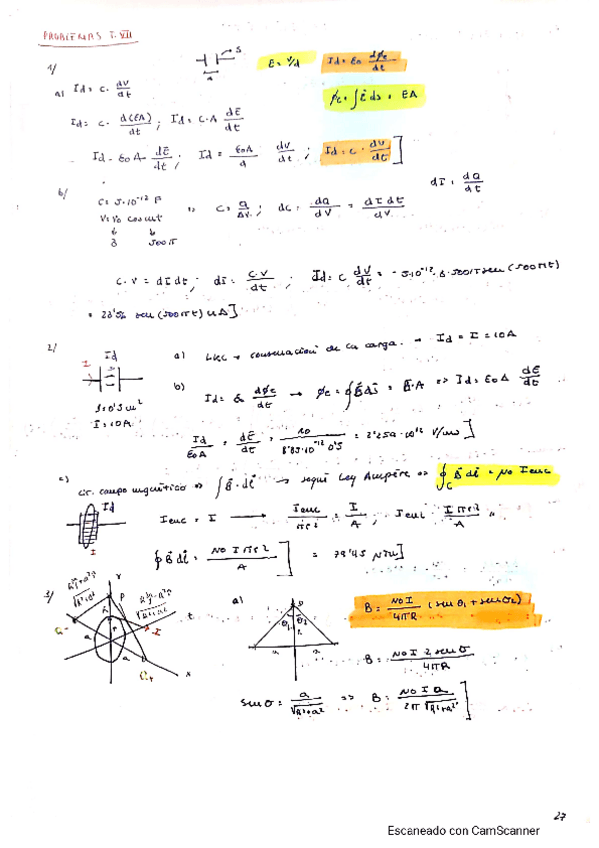 PROBLEMAS T. VII
1/
S
d
E = V/d
Id = ε0 dϕe/dt
a) Id = C · dV/dt
ϕe = ∫E ds = EA
Id = C · d(EA)/dt ; Id = C·A dE/dt
Id = ε0 A dE/dt ; Id = ε0A/d dV/dt ; Id = C · dV/dt ]
dI = dQ/dt
b/
C = 5·10⁻¹² F
V = V0 cos ωt
3 500π
C = Q/ΔV ; dC = dQ/dV = dI dt/dV
C·V = dI dt ; dI = C·V/dt ; Id = C dV/dt = -5·10⁻¹²·3·500π sen (500πt)
= 23'56 sen (500πt) nA ]
2/
Id
I
S = 0'5 m²
I = 10A
a) LKC → conservación de la carga. → Id = I = 10A
b) Id = ε0 dϕe/dt → ϕe = ∮E ds = E·A => Id = ε0A dE/dt
Id/ε0A = dE/dt = 10/8'85·10⁻¹² 0'5 = 2'259·10¹² V/ms ]
c) Cir. campo magnético => ∫B·dl → según Ley Ampère => ∮C B dl = μ0 Ienc
Id
I
Ienc = I → Ienc/πr² = I/A ; Ienc = I πr²/A
∮B dl = μ0 I πr²/A ] = 78'95 nTm ]
3/
a)
θ1 θ2
B = μ0I/4πR (senθ1 + senθ2)
B = μ0I 2 senθ/4πR
senθ = a/√R²+a² => B = μ0 I a/2π √R²+a² ]
27
Escaneado con CamScanner